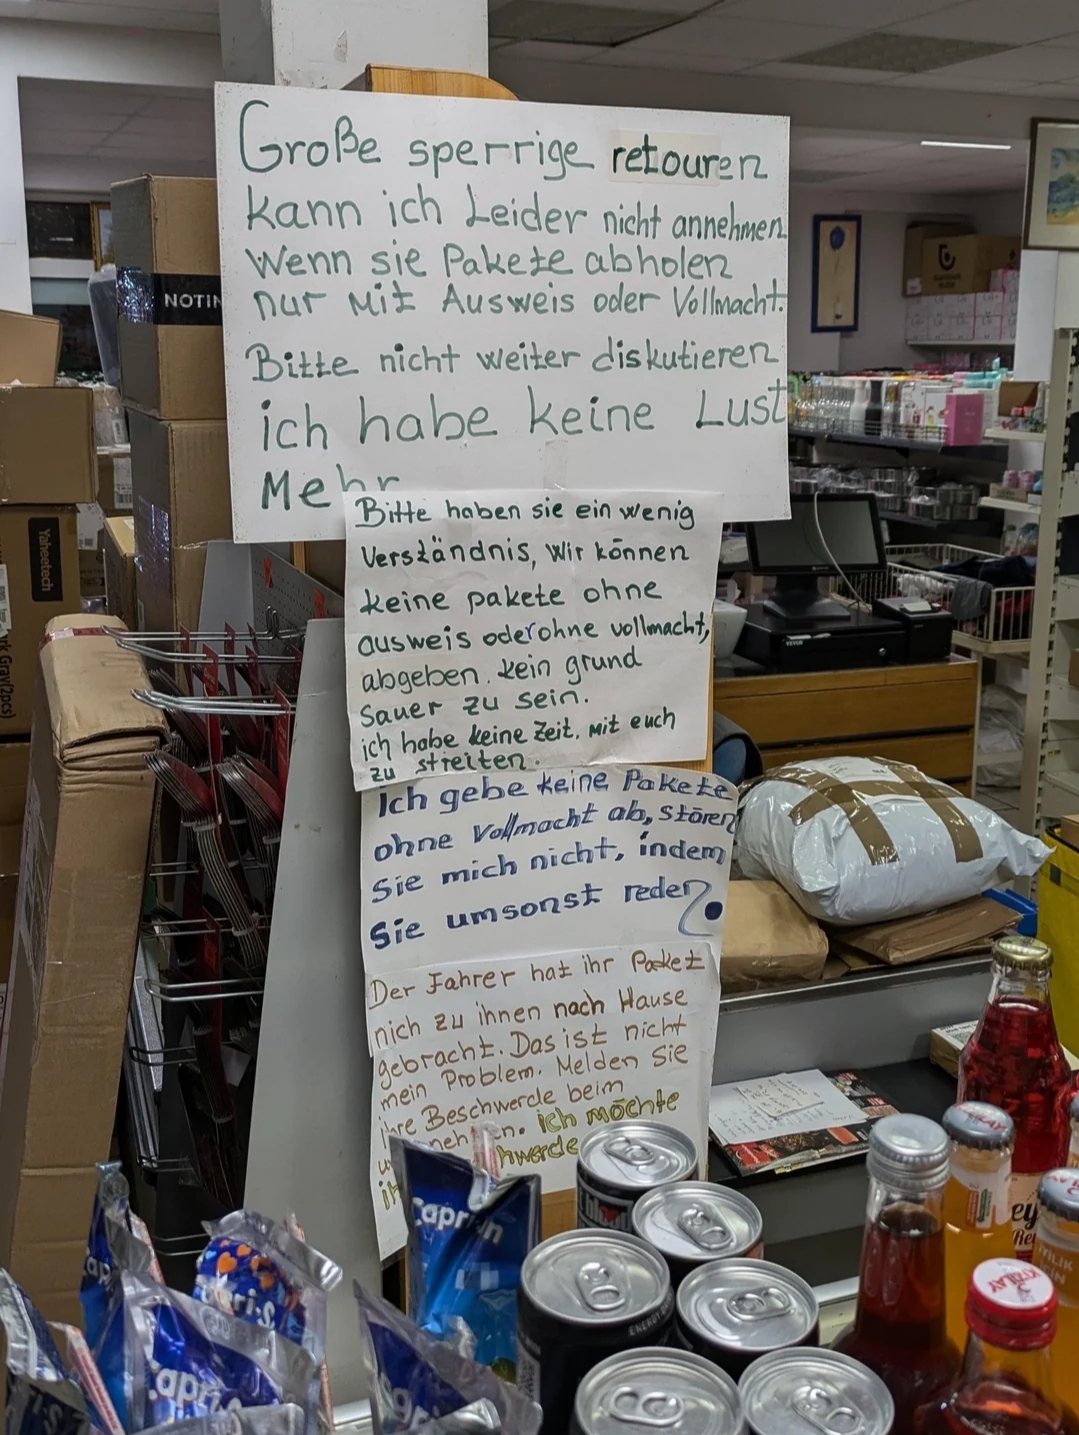 Große sperrige retouren
kann ich Leider nicht annehmen
Wenn sie Pakete abholen
nur mit Ausweis oder Vollmacht.
Bitte nicht weiter diskutieren
ich habe keine Lust
Mehr
Bitte haben sie ein wenig
Verständnis, wir können
keine pakete ohne
ausweis oder ohne vollmacht,
abgeben. kein grund
sauer zu sein.
ich habe keine Zeit. mit euch
zu streiten.
Ich gebe keine Pakete
ohne Vollmacht ab, stören
Sie mich nicht, indem
Sie umsonst reden.
Der Fahrer hat ihr Paket
nich zu ihnen nach Hause
gebracht. Das ist nicht
mein Problem. Melden Sie
ihre Beschwerde beim
ich möchte
NOTIN
Yaheetech
k Gray(2pcs)
VEVOR
Capri
ENERGY